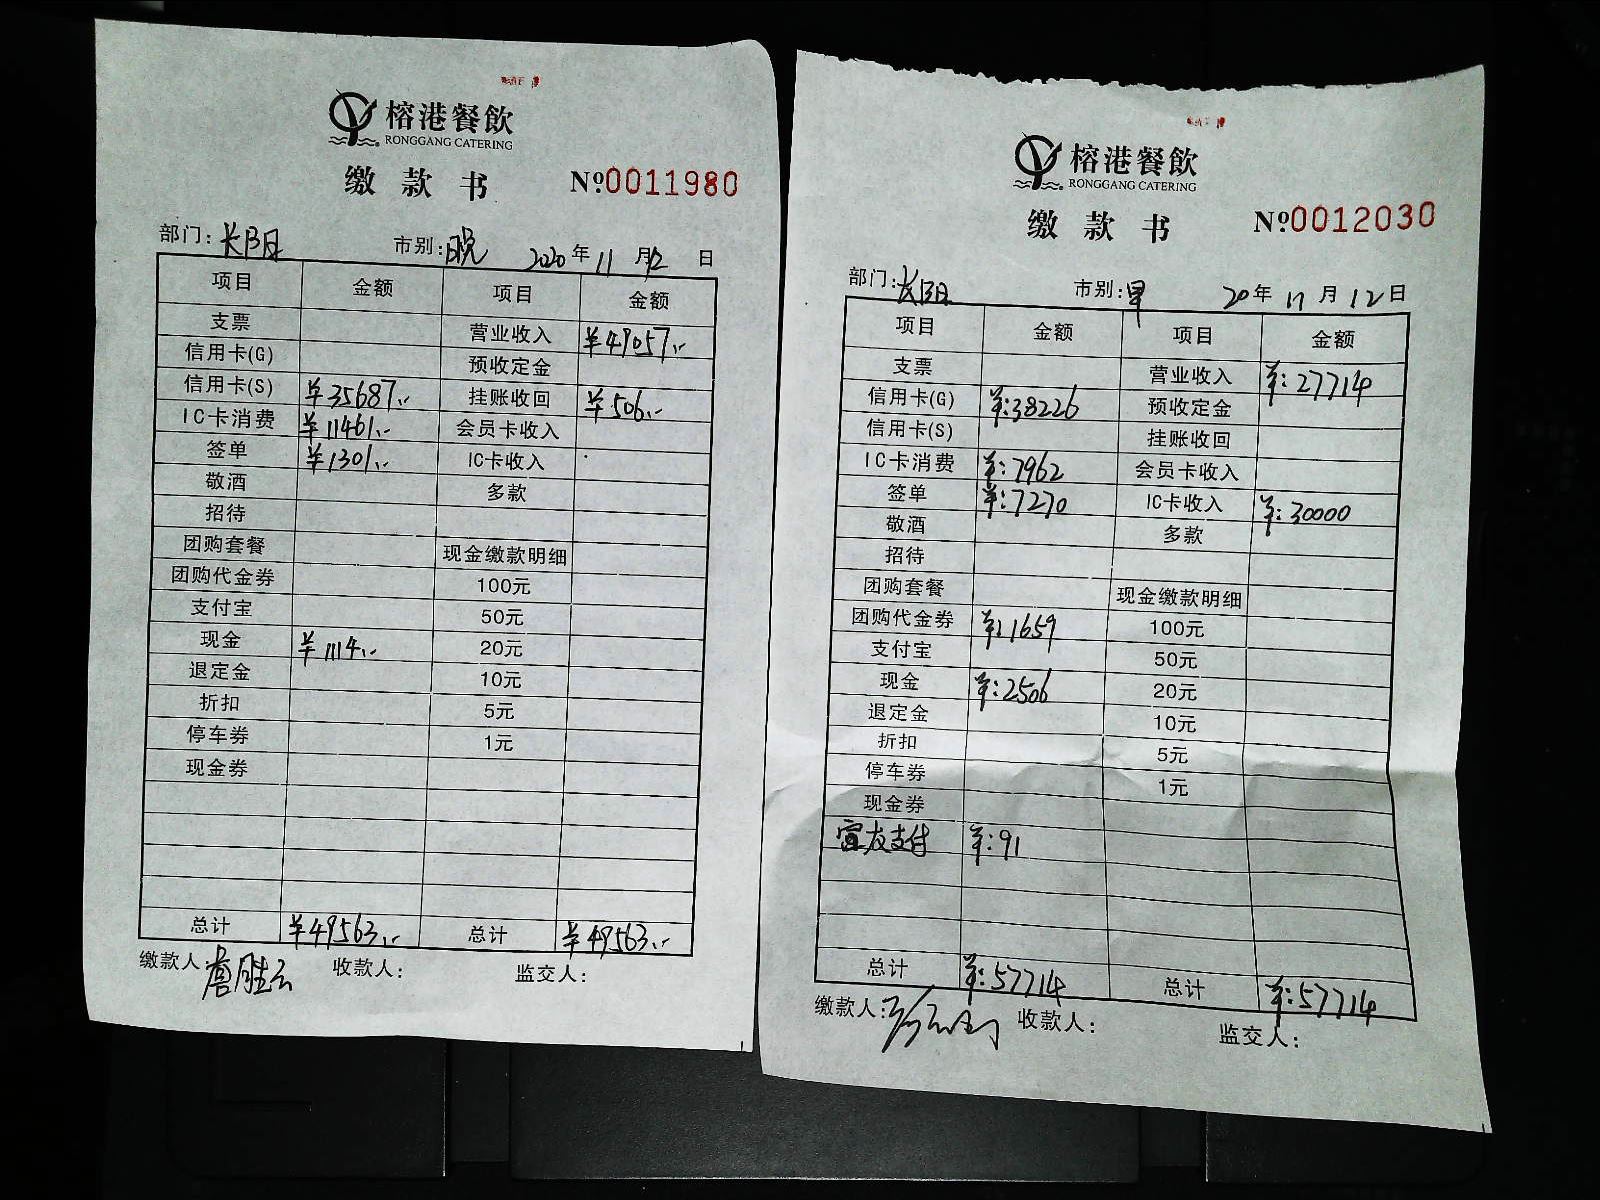 榕港餐飲
RONGGANG CATERING
缴款书 №0011980
部门: 长阳 市别: 晚 2020年11月12日
项目 金额 项目 金额
支票 营业收入 ¥49057.-
信用卡(G) 预收定金
信用卡(S) ¥35687.- 挂账收回 ¥506.-
IC卡消费 ¥11461.- 会员卡收入
签单 ¥1301.- IC卡收入
敬酒 多款
招待
团购套餐 现金缴款明细
团购代金券 100元
支付宝 50元
现金 ¥1114.- 20元
退定金 10元
折扣 5元
停车券 1元
现金券
总计 ¥49563.- 总计 ¥49563.-
缴款人: 收款人: 监交人:
榕港餐飲
RONGGANG CATERING
缴款书 №0012030
部门: 长阳 市别: 早 20年11月12日
项目 金额 项目 金额
支票 营业收入 ¥:27714
信用卡(G) ¥:38226 预收定金
信用卡(S) 挂账收回
IC卡消费 ¥:7962 会员卡收入
签单 ¥:7270 IC卡收入 ¥:30000
敬酒 多款
招待
团购套餐 现金缴款明细
团购代金券 ¥:1659 100元
支付宝 50元
现金 ¥:2506 20元
退定金 10元
折扣 5元
停车券 1元
现金券
友支付 ¥:91
总计 ¥:57714 总计 ¥:57714
缴款人: 收款人: 监交人: